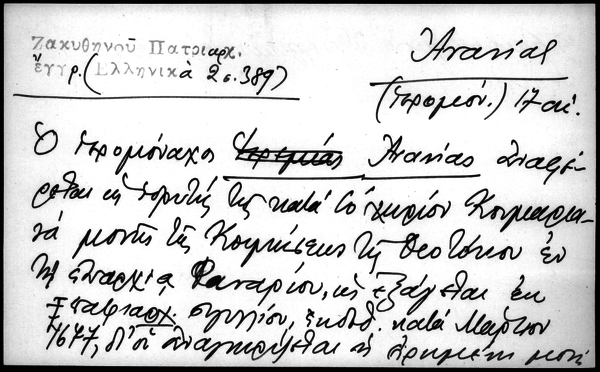 Ζακυθηνοῦ Πατριαρχ.
ἔγγρ. (Ἑλληνικὰ 2 σ. 389)
Ἀνανίας
(ἱερομόν.) 17 αἰ.
Ὁ ἱερομόναχος Ἱερεμίας Ἀνανίας ἀναφέ-
ρεται ὡς ἱδρυτής τῆς κατά τό χωρίον
μονῆς τῆς Κοιμήσεως τῆς Θεοτόκου ἐν
τῇ ἐπαρχίᾳ Φαναρίου, ὡς ἐξάγεται ἐκ
πατριαρχ. σιγιλλίου, ἐκδοθ. κατά Μάρτιον
1677, δι' οὗ ἀναγνωρίζεται ἡ μονή